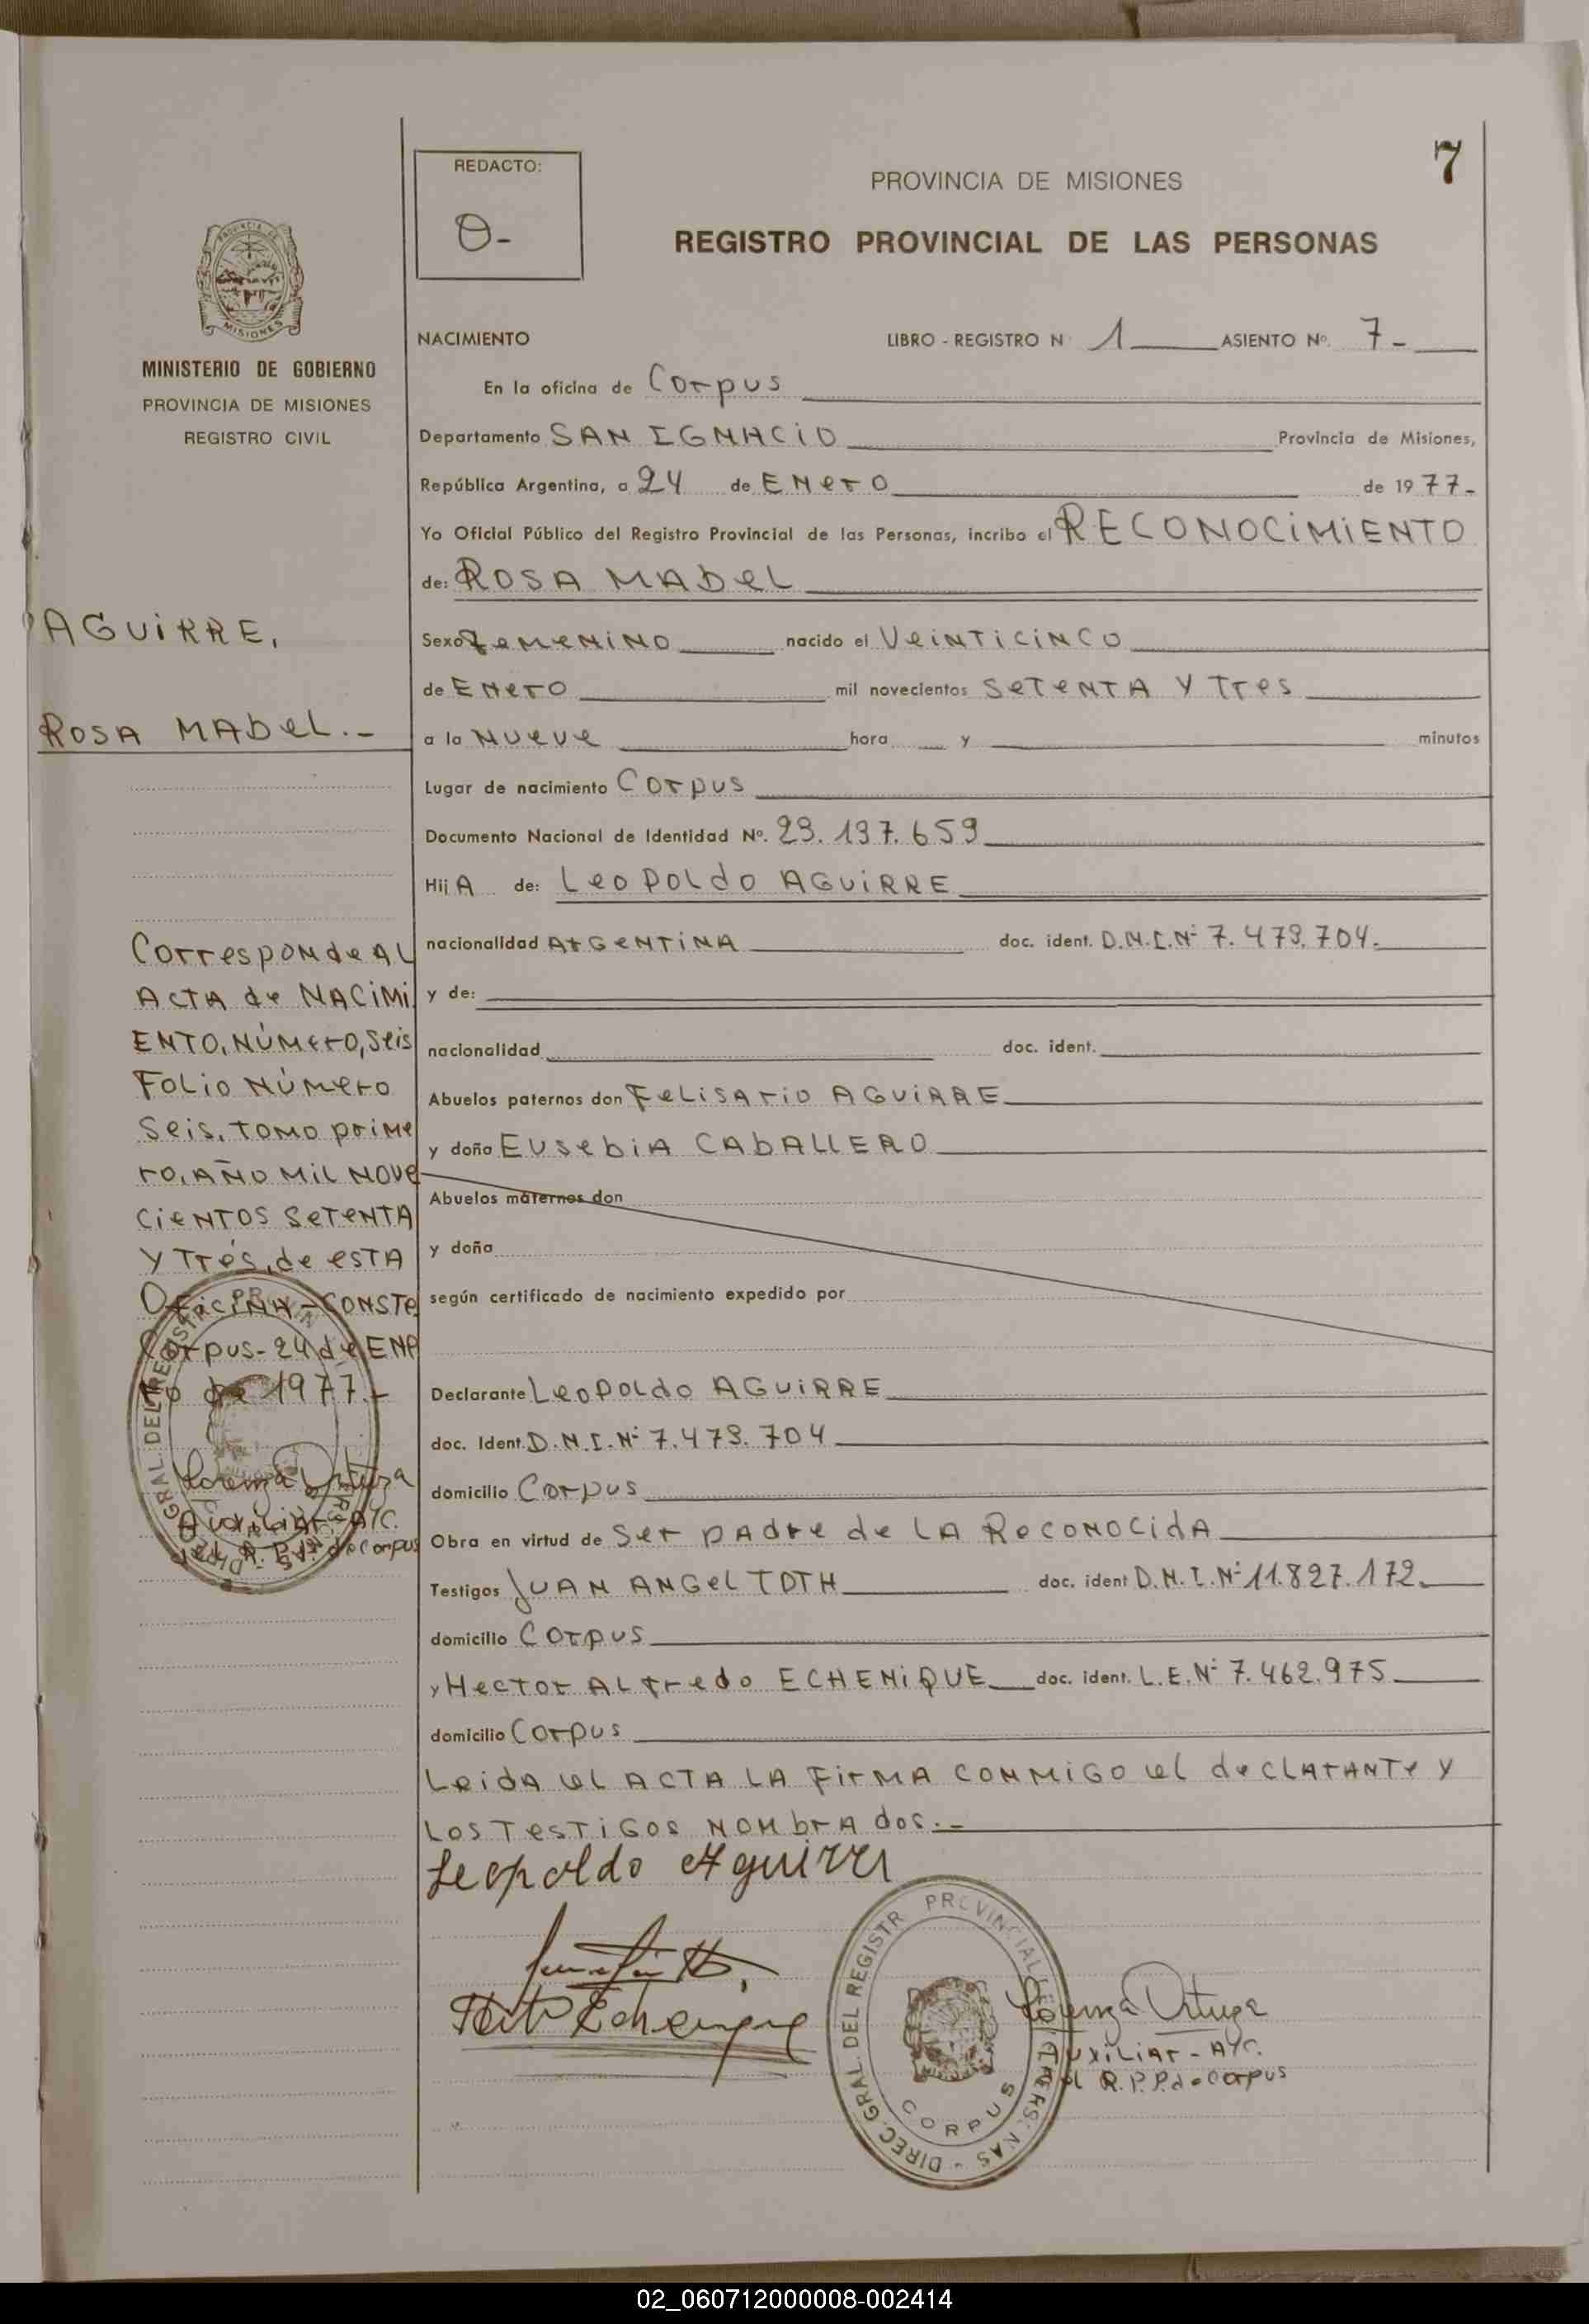 7
REDACTO:
O-
PROVINCIA DE MISIONES
REGISTRO PROVINCIAL DE LAS PERSONAS
PROVINCIA DE
MISIONES
MINISTERIO DE GOBIERNO
PROVINCIA DE MISIONES
REGISTRO CIVIL
AGUIRRE,
ROSA MABEL.-
Corresponde AL
ACTA de NACIMI
ENTO, NÚMERO, Seis
FOLIO NÚMERO
Seis, TOMO prime
ro, AÑO MIL NOVE
CIENTOS SETENTA
Y Trés, de esTA
OFICINA-CONSTE
Corpus-24 de ENE
ro de 1977.-
Lorenza Ortuza
Auxiliar A/C.
del R.P.P. de Corpus
NACIMIENTO LIBRO - REGISTRO N 1 ASIENTO Nº. 7-
En la oficina de Corpus
Departamento SAN IGNACIO Provincia de Misiones,
República Argentina, a 24 de ENERO de 1977-
Yo Oficial Público del Registro Provincial de las Personas, incribo el RECONOCIMIENTO
de: ROSA MABEL
Sexo FEMENINO nacido el VEINTICINCO
de ENERO mil novecientos SETENTA Y Tres
a la NUEVE hora y minutos
Lugar de nacimiento Corpus
Documento Nacional de Identidad Nº. 23.137.659
Hij A de: LEOPOLDO AGUIRRE
nacionalidad ARGENTINA doc. ident. D.N.I.Nº 7.473.704.
y de:
nacionalidad doc. ident.
Abuelos paternos don FELISARIO AGUIRRE
y doña EUSEBIA CABALLERO
Abuelos maternos don
y doña
según certificado de nacimiento expedido por
Declarante LEOPOLDO AGUIRRE
doc. Ident. D.N.I.Nº 7.473.704
domicilio Corpus
Obra en virtud de Ser PADRE de LA ReCONOCIDA
Testigos JUAN ANGEL TOTH doc. ident D.N.I.Nº 11.827.172.
domicilio Corpus
y HECTOR ALFREDO ECHENIQUE doc. ident. L.E.Nº 7.462.975
domicilio Corpus
Leida el ACTA LA FIRMA CONMIGO el deCLARANTE y
LOS TESTIGOS NOMBRADOS.-
Leopoldo Aguirre
Echenique
DIREC. GRAL. DEL REGISTR PROVINCIAL PERSONAS
CORPUS
Lorenza Ortuza
Auxiliar - A/C.
del R.P.P. de Corpus
02_060712000008-002414